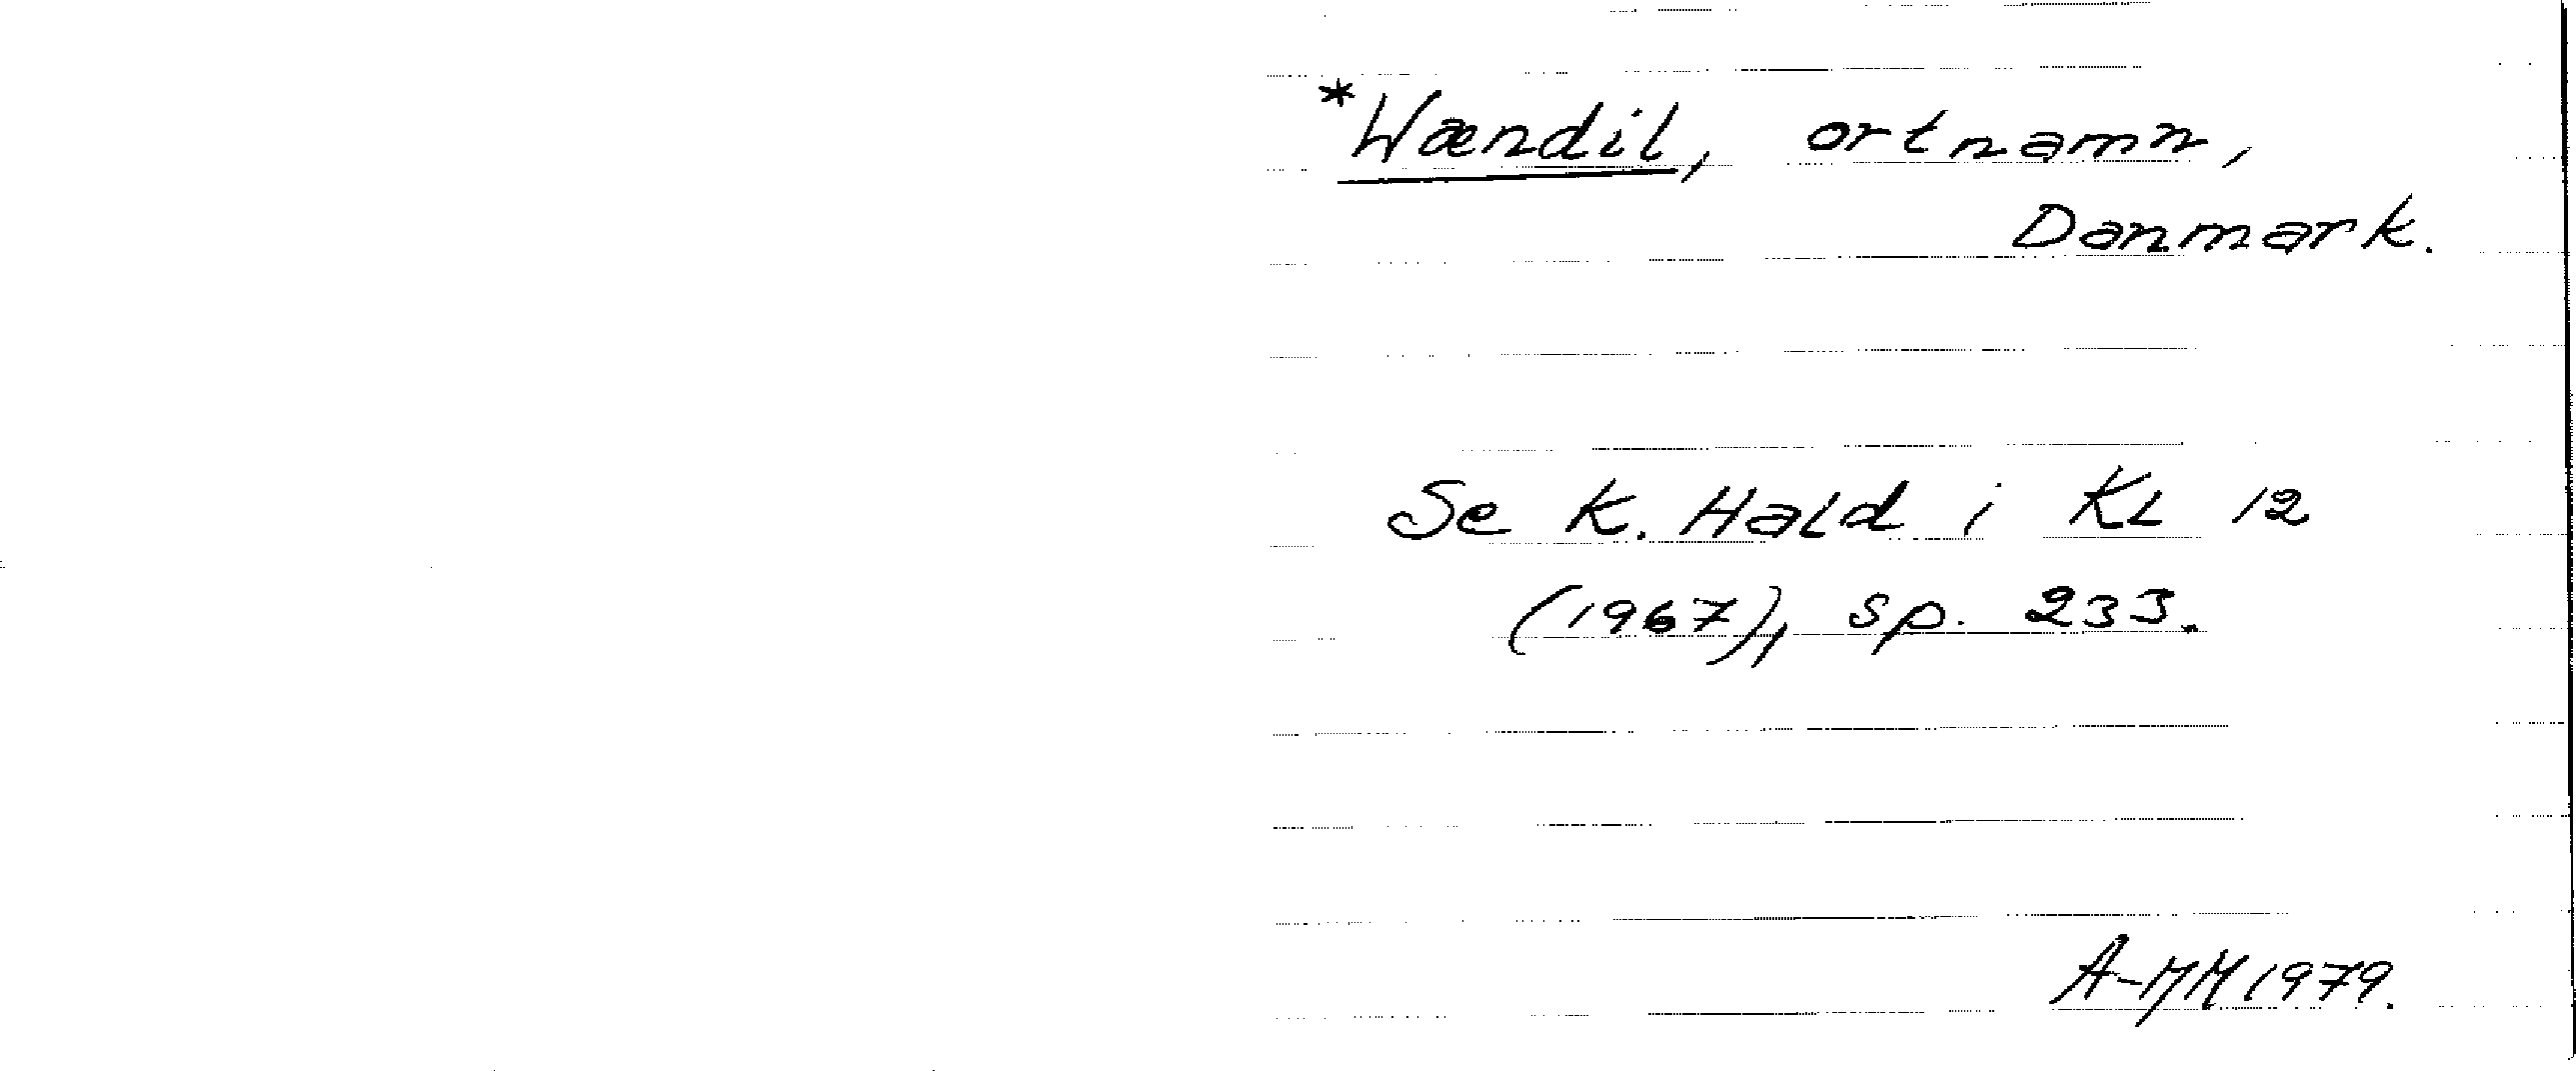 *Wændil, ortnamn,
Danmark.
Se K. Hald i KL 12
(1967), sp. 233.
A-MM 1979.